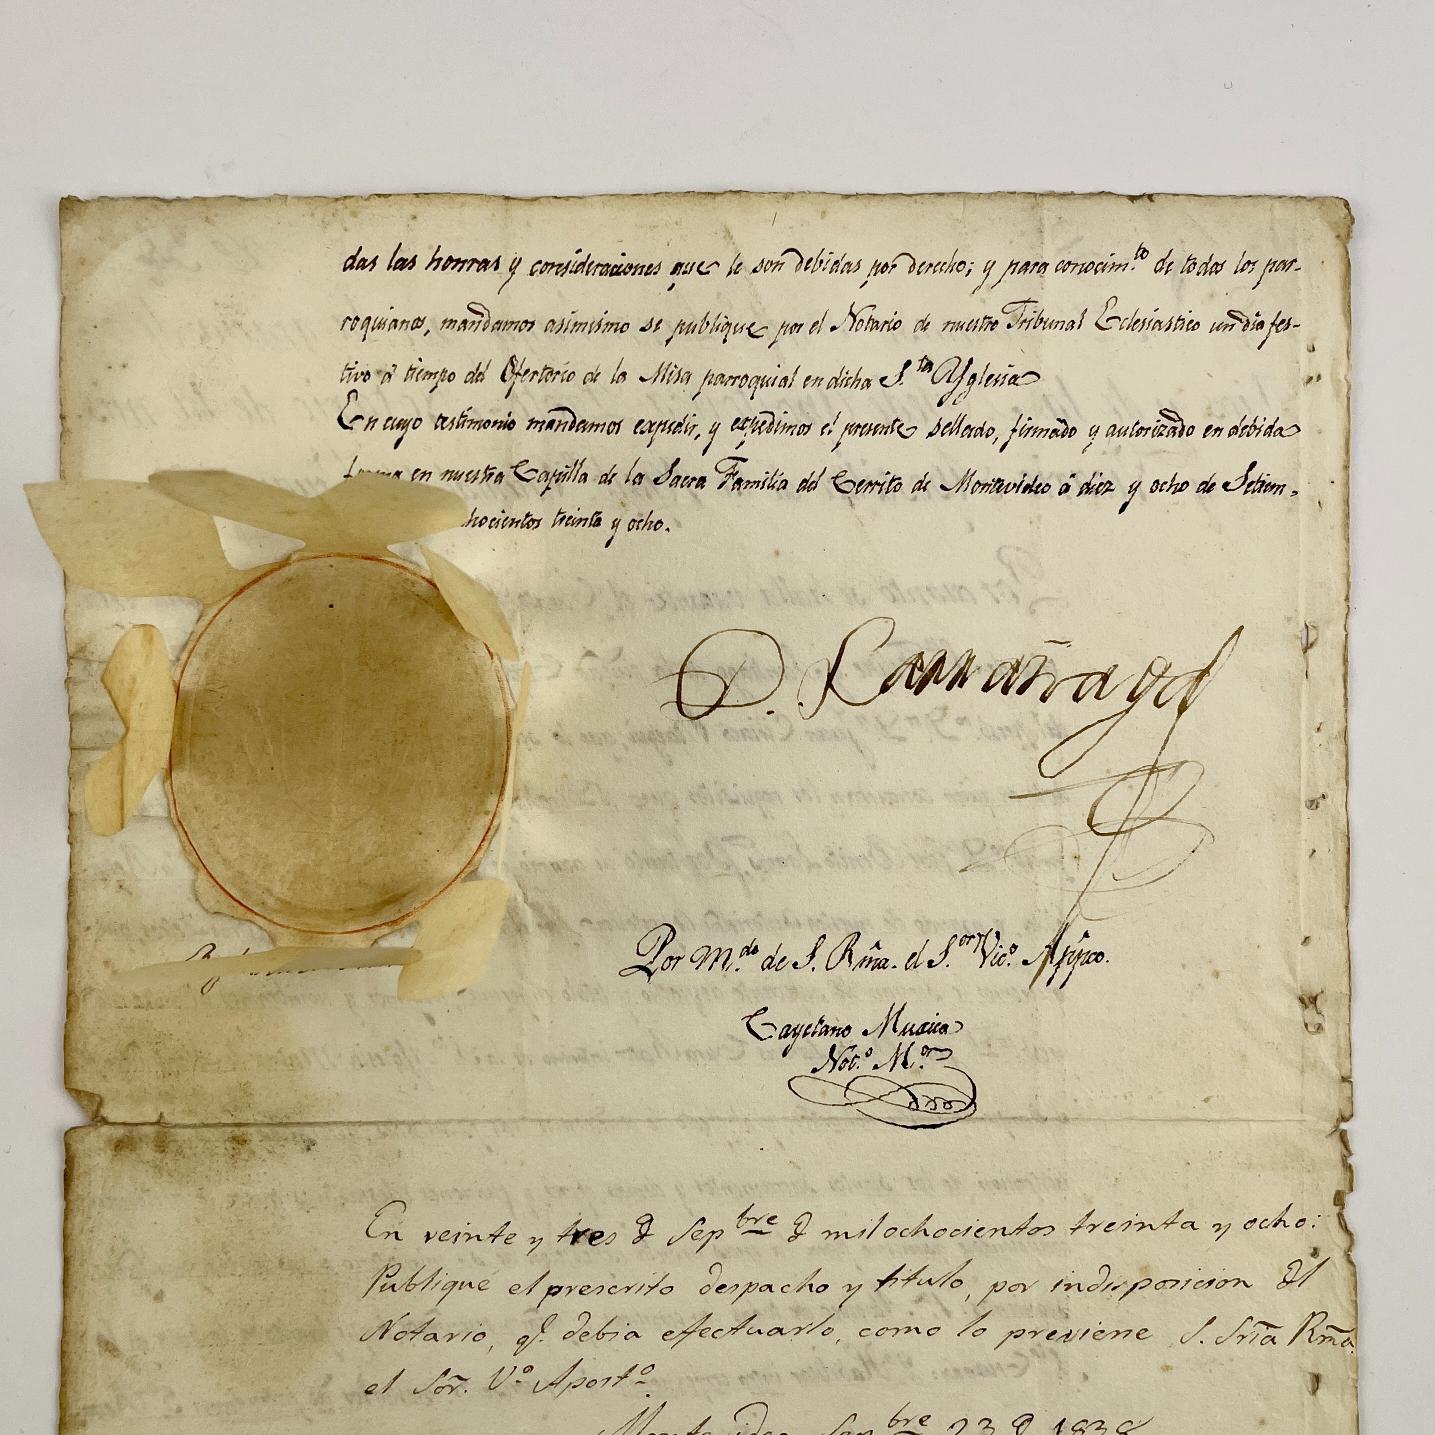 das las honras y consideraciones que le son debidas por derecho; y para conocim.to de todos los par-
roquianos, mandamos asimismo se publique por el Notario de nuestro Tribunal Eclesiastico un dia fes-
tivo á tiempo del Ofertorio de la Misa parroquial en dicha S.ta Yglesia
En cuyo testimonio mandamos expedir, y expedimos el presente sellado, firmado y autorizado en debida
forma en nuestra Capilla de la Sacra Familia del Cerrito de Montevideo á diez y ocho de Setiem-
hocientos treinta y ocho.
D. Larrañaga
Por M.do de S. Rma. el S.or Vico. Appco.
Cayetano Muxica
Not.o M.or
En veinte y tres d Sepbre d mil ochocientos treinta y ocho:
Publiqué el prescrito despacho y titulo, por indisposicion dl
Notario, q.e debia efectuarlo, como lo previene S. Sria Rma.
el Sor. Vo Aposto.
Montevideo Sepbre 23 d 1838